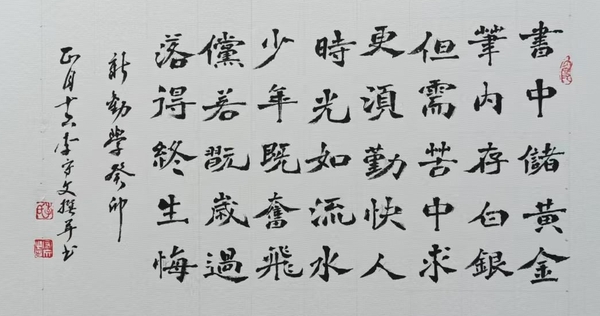 書中儲黃金
筆内存白銀
但需苦中求
更須勤快人
時光如流水
少年既奮飛
儻若翫歲過
落得終生悔
新勸學癸卯
正月十六李守文撰并书